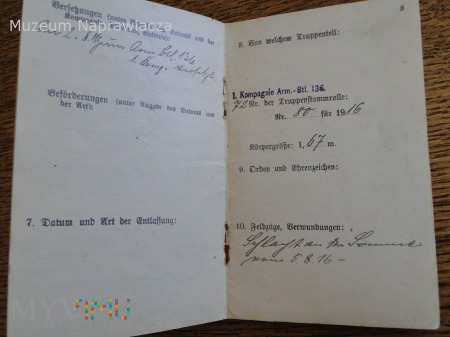 Muzeum Naprawiacza
Versetzungen (unter
2. 8. 16 zum Arm. Btl. 136
1. Comp. versetzt.
Beförderungen (unter Angabe des Datums und
der Art):
7. Datum und Art der Entlassung:
MYVIMU
3
8. Von welchem Truppenteil:
1. Kompagnie Arm.-Btl. 136.
72 Nr. der Truppenstammrolle:
Nr. 80 für 1916
Körpergröße: 1,67 m.
9. Orden und Ehrenzeichen:
10. Feldzüge, Verwundungen:
Schlacht an der Somme
vom 5.8.16 –